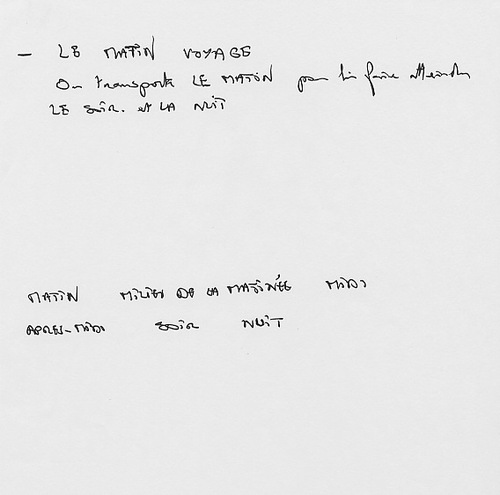 — LE MATIN VOYAGE
On transporte LE MATIN pour lui faire atteindre
LE SOIR. et LA NUIT
MATIN MILIEU DE LA MATINÉE MIDI
APRES-MIDI SOIR NUIT